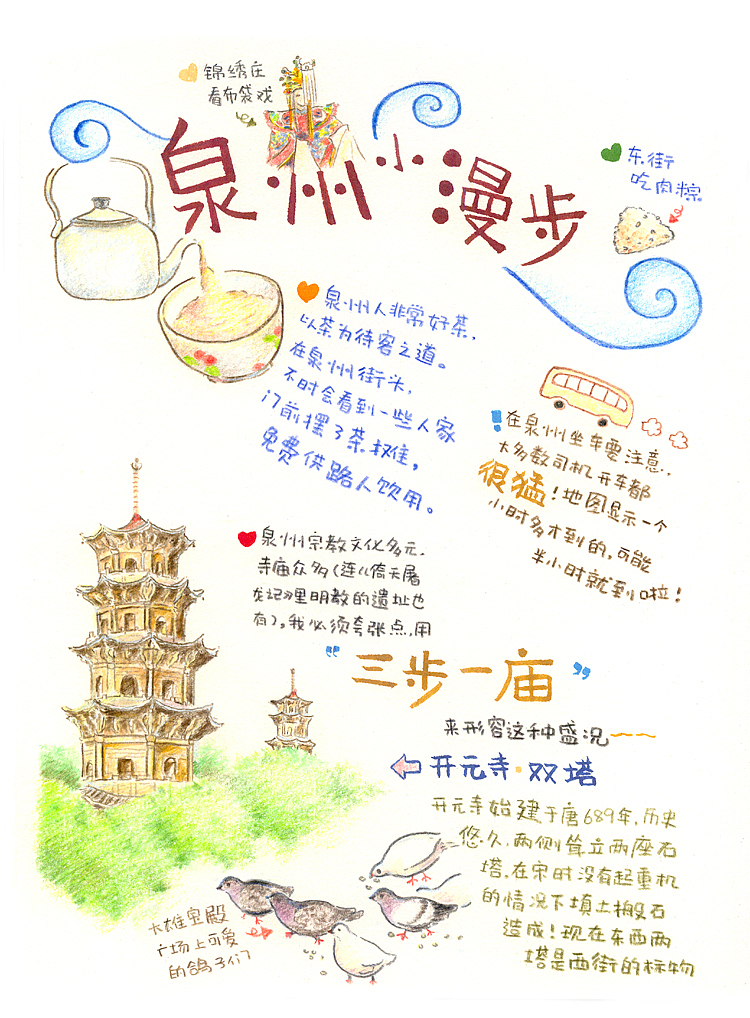 锦绣庄
看布袋戏
泉州小漫步
东街
吃肉粽
泉州人非常好茶，
以茶为待客之道。
在泉州街头，
不时会看到一些人家
门前摆了茶摊，
免费供路人饮用。
在泉州坐车要注意，
大多数司机开车都
很猛！地图显示一个
小时多才到的，可能
半小时就到啦！
泉州宗教文化多元，
寺庙众多（连《倚天屠
龙记》里明教的遗址也
有）。我必须夸张点，用
“三步一庙”
来形容这种盛况～～
开元寺·双塔
开元寺始建于唐689年，历史
悠久，两侧耸立两座石
塔，在宋时没有起重机
的情况下填土搬石
造成！现在东西两
塔是西街的标物
大雄宝殿
广场上可爱
的鸽子们